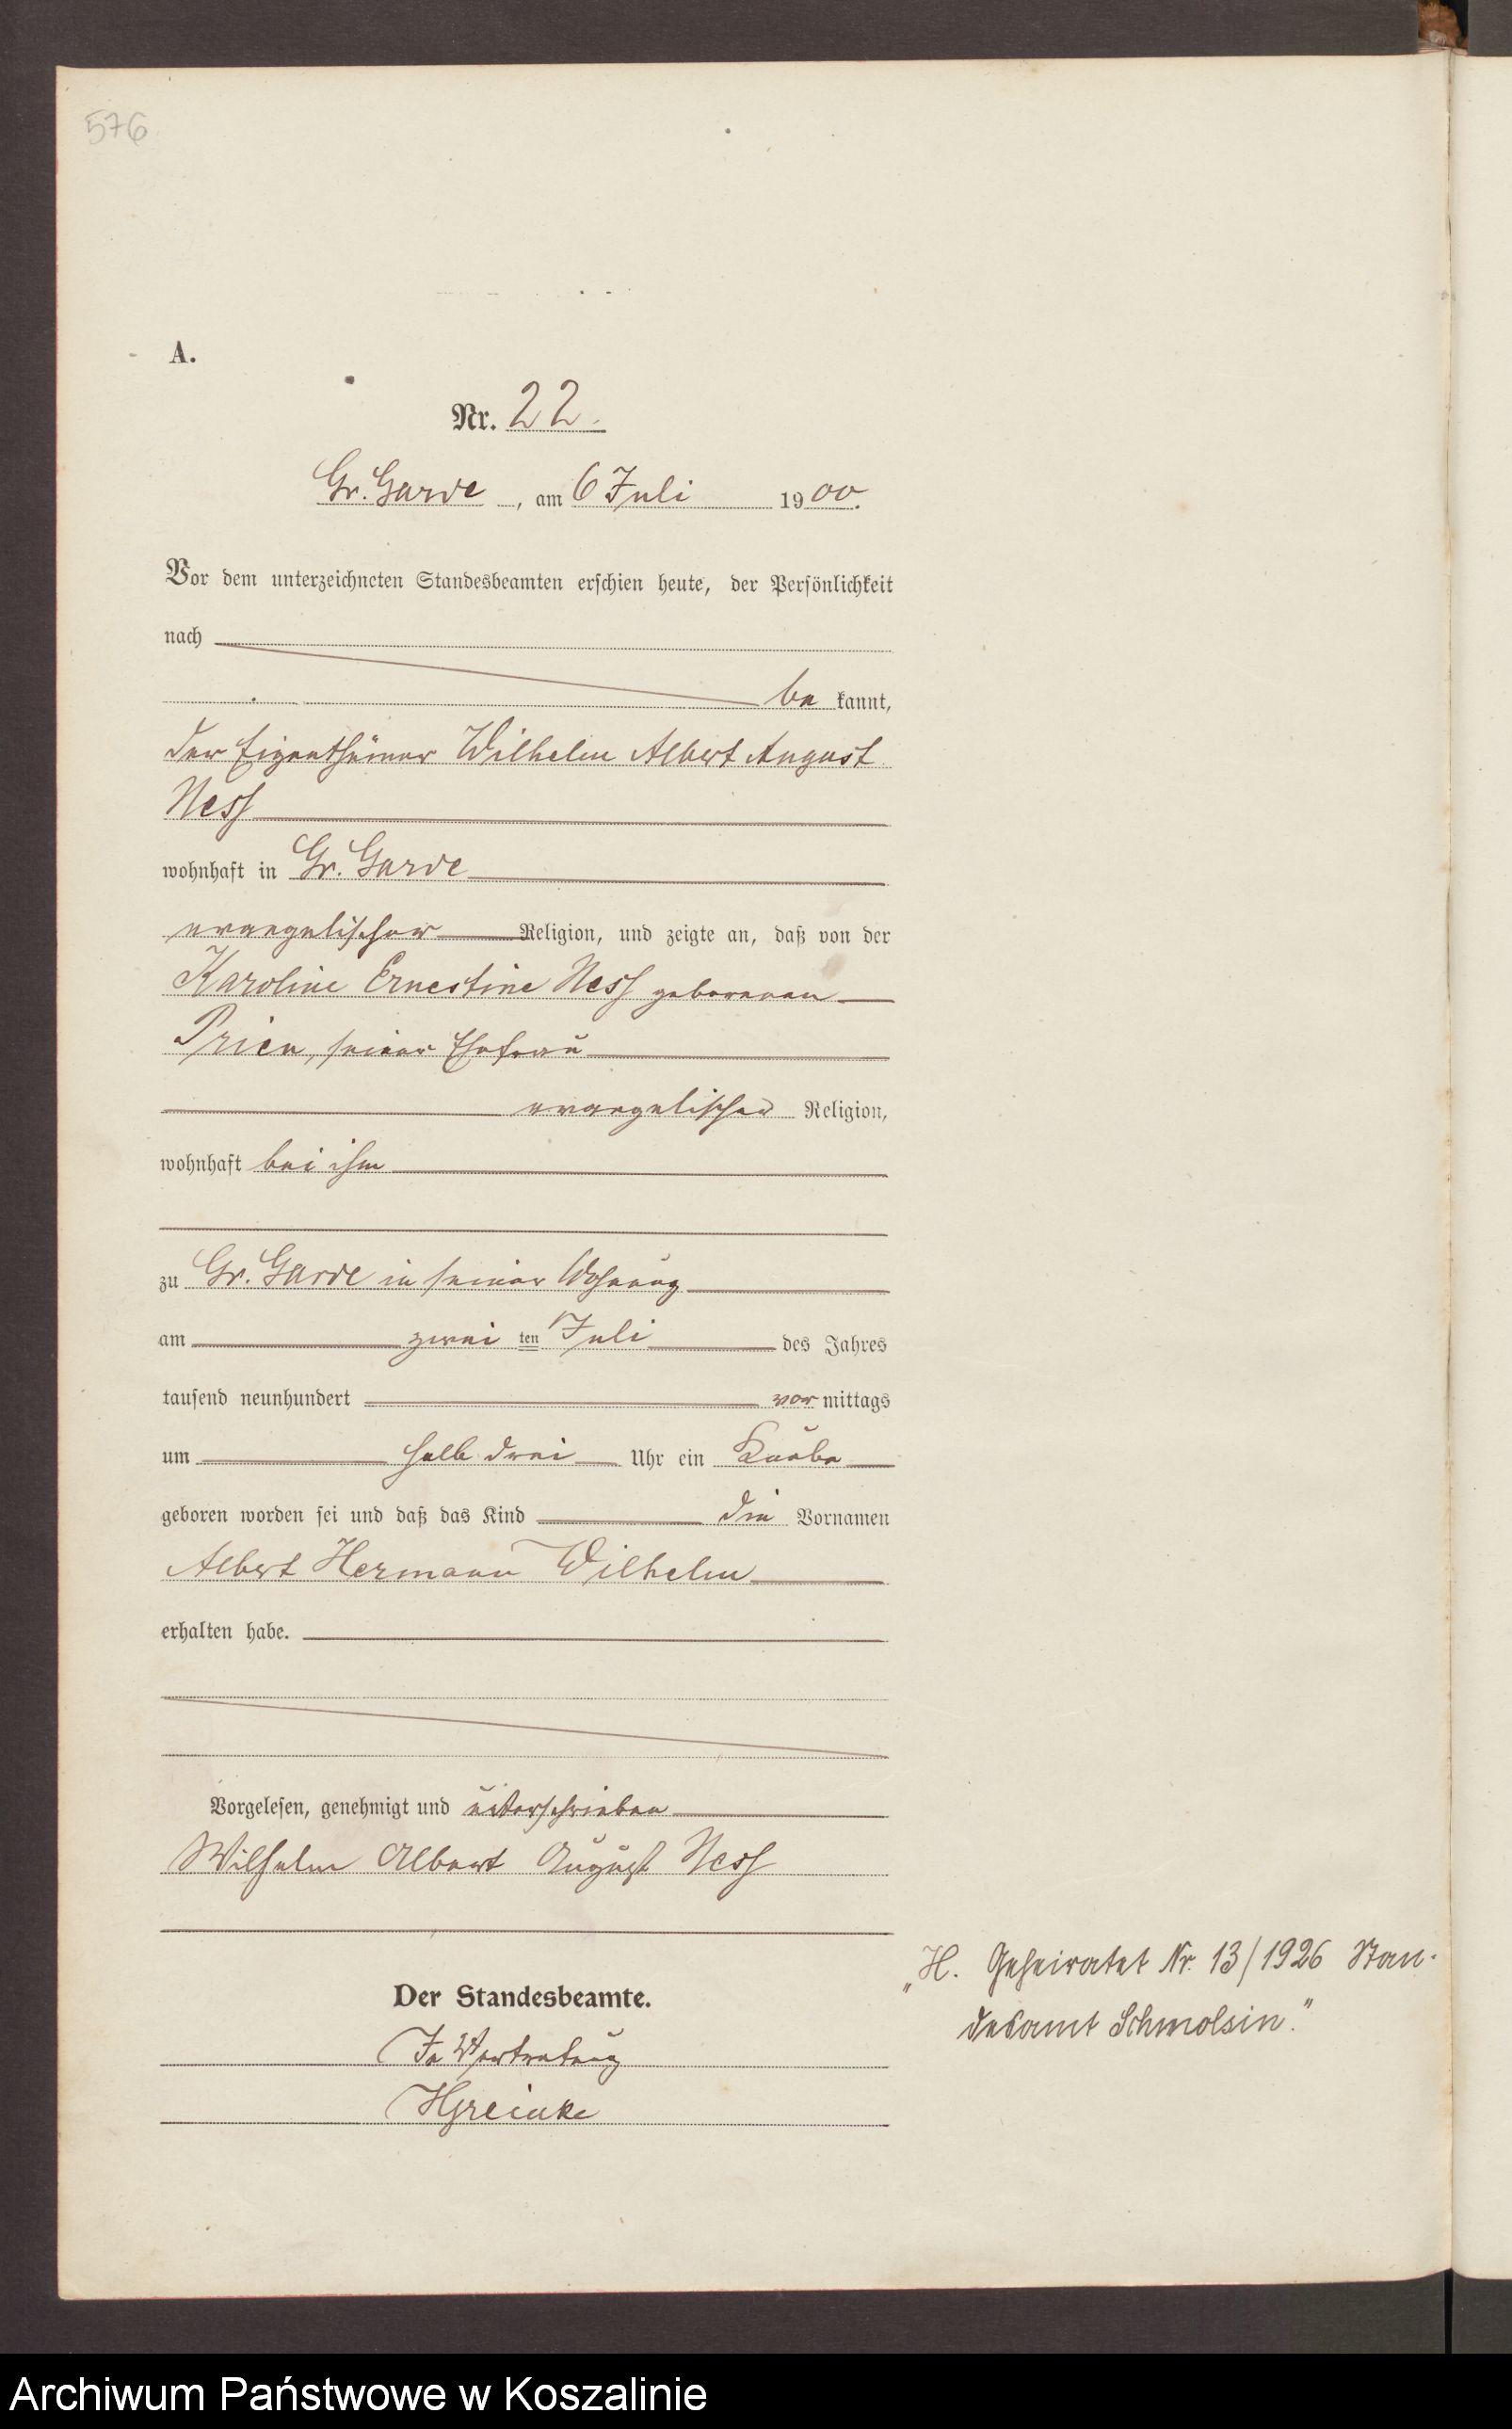 576
A.
Nr. 22.
Gr. Garde, am 6 Juli 1900.
Vor dem unterzeichneten Standesbeamten erschien heute, der Persönlichkeit
nach
be kannt,
der Eigenthümer Wilhelm Albert August
Ness
wohnhaft in Gr. Garde
evangelischer Religion, und zeigte an, daß von der
Karoline Ernestine Ness geborenen
Prien, seiner Ehefrau
evangelischer Religion,
wohnhaft bei ihm
zu Gr. Garde in seiner Wohnung
am zwei ten Juli des Jahres
tausend neunhundert vor mittags
um halb drei Uhr ein Knabe
geboren worden sei und daß das Kind die Vornamen
Albert Hermann Wilhelm
erhalten habe.
Vorgelesen, genehmigt und unterschrieben
Wilhelm Albert August Ness
Der Standesbeamte.
In Vertretung
HGreinke
„H. Geheiratet Nr. 13/1926 Stan-
desamt Schmolsin."
Archiwum Państwowe w Koszalinie